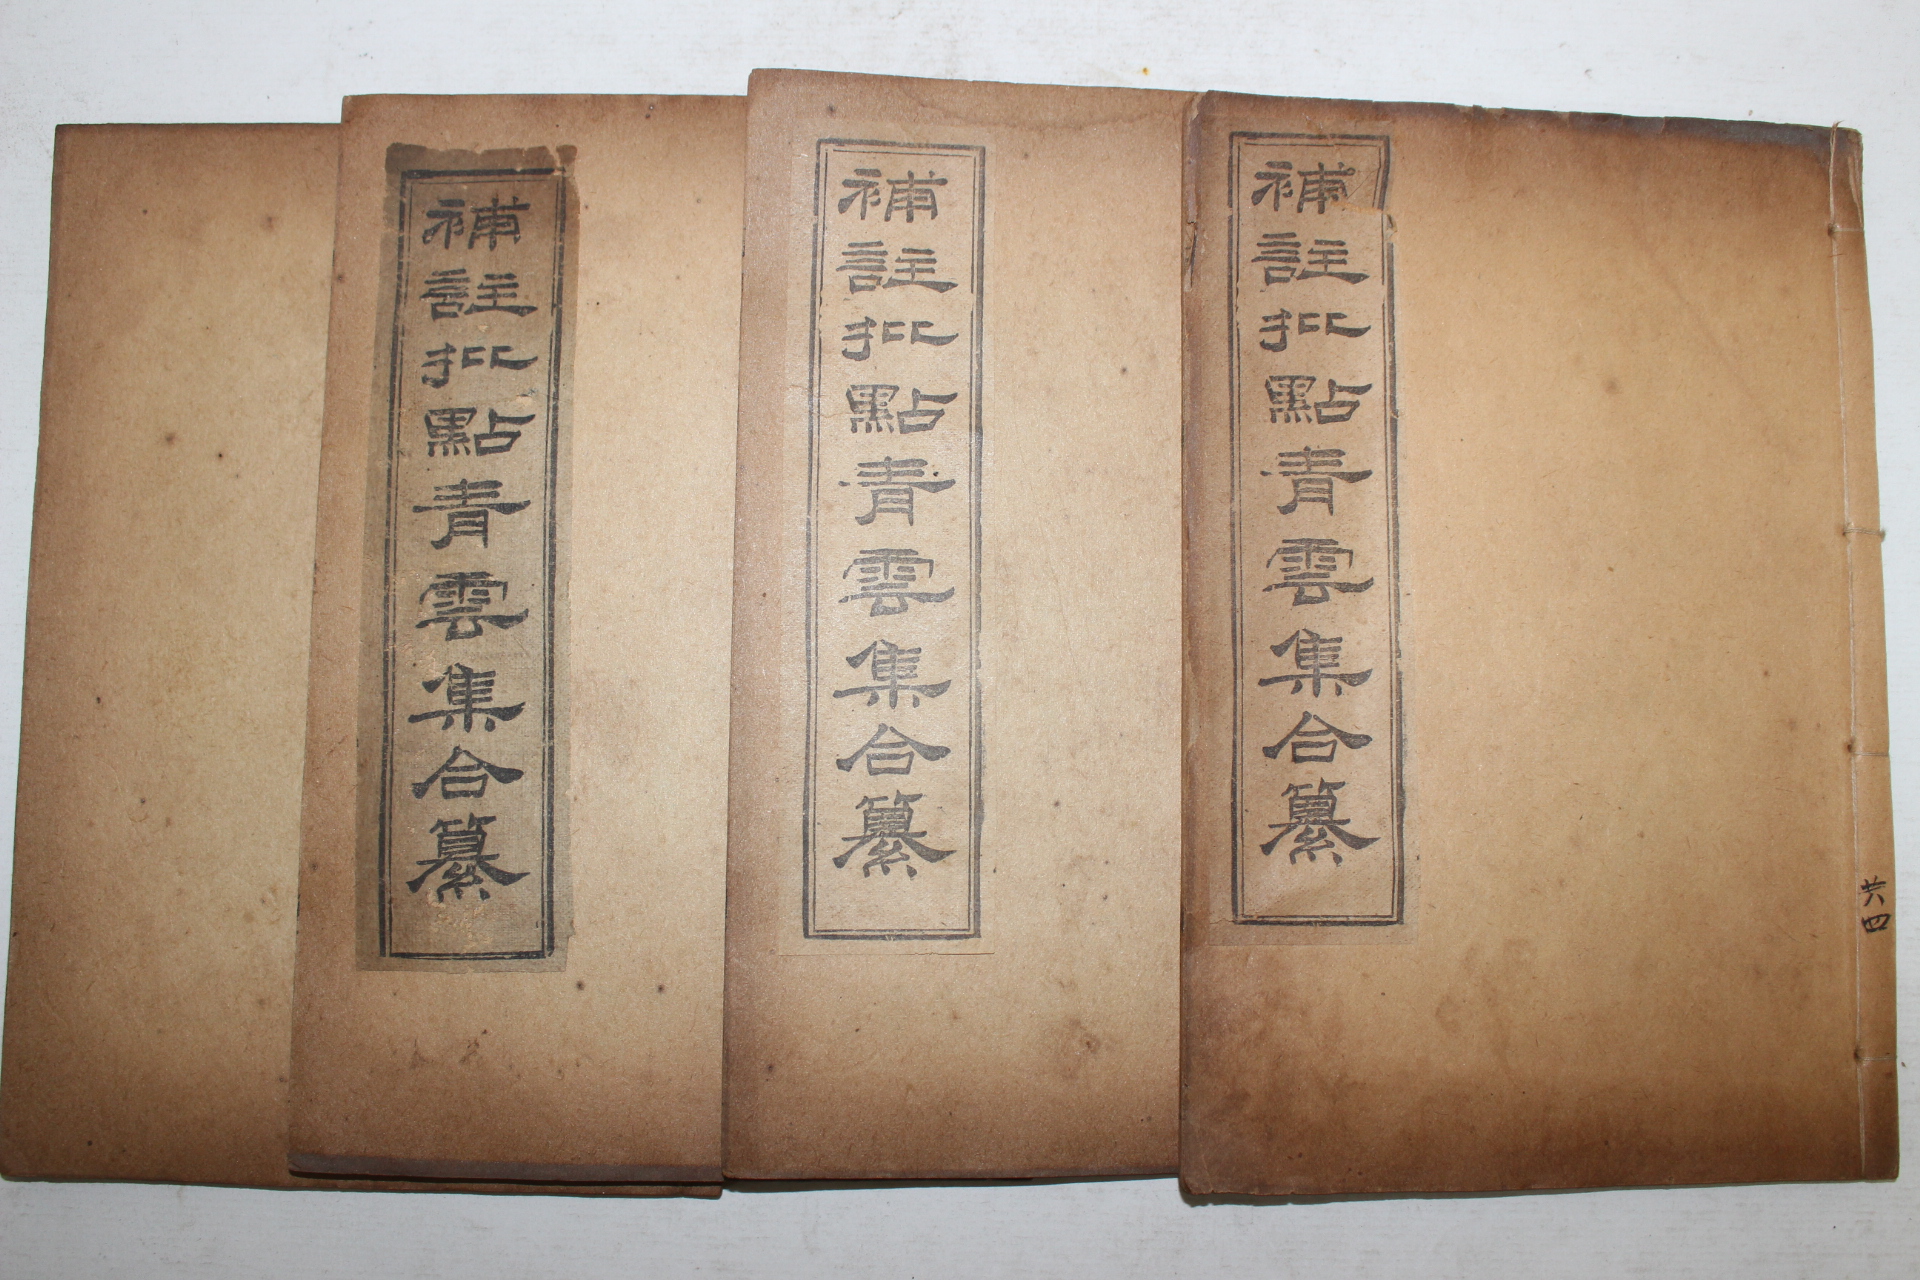 補註批點青雲集合纂
共四
補註批點青雲集合纂
補註批點青雲集合纂